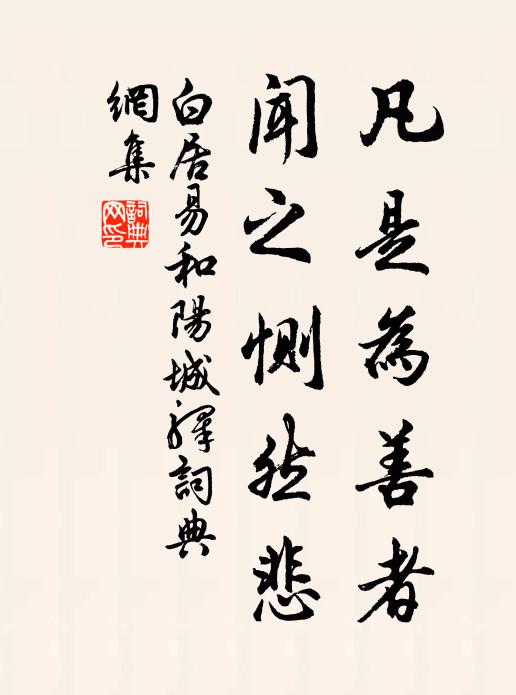 凡是為善者
聞之惻然悲
白居易和陽城驛詞典
網集
詞典
网印